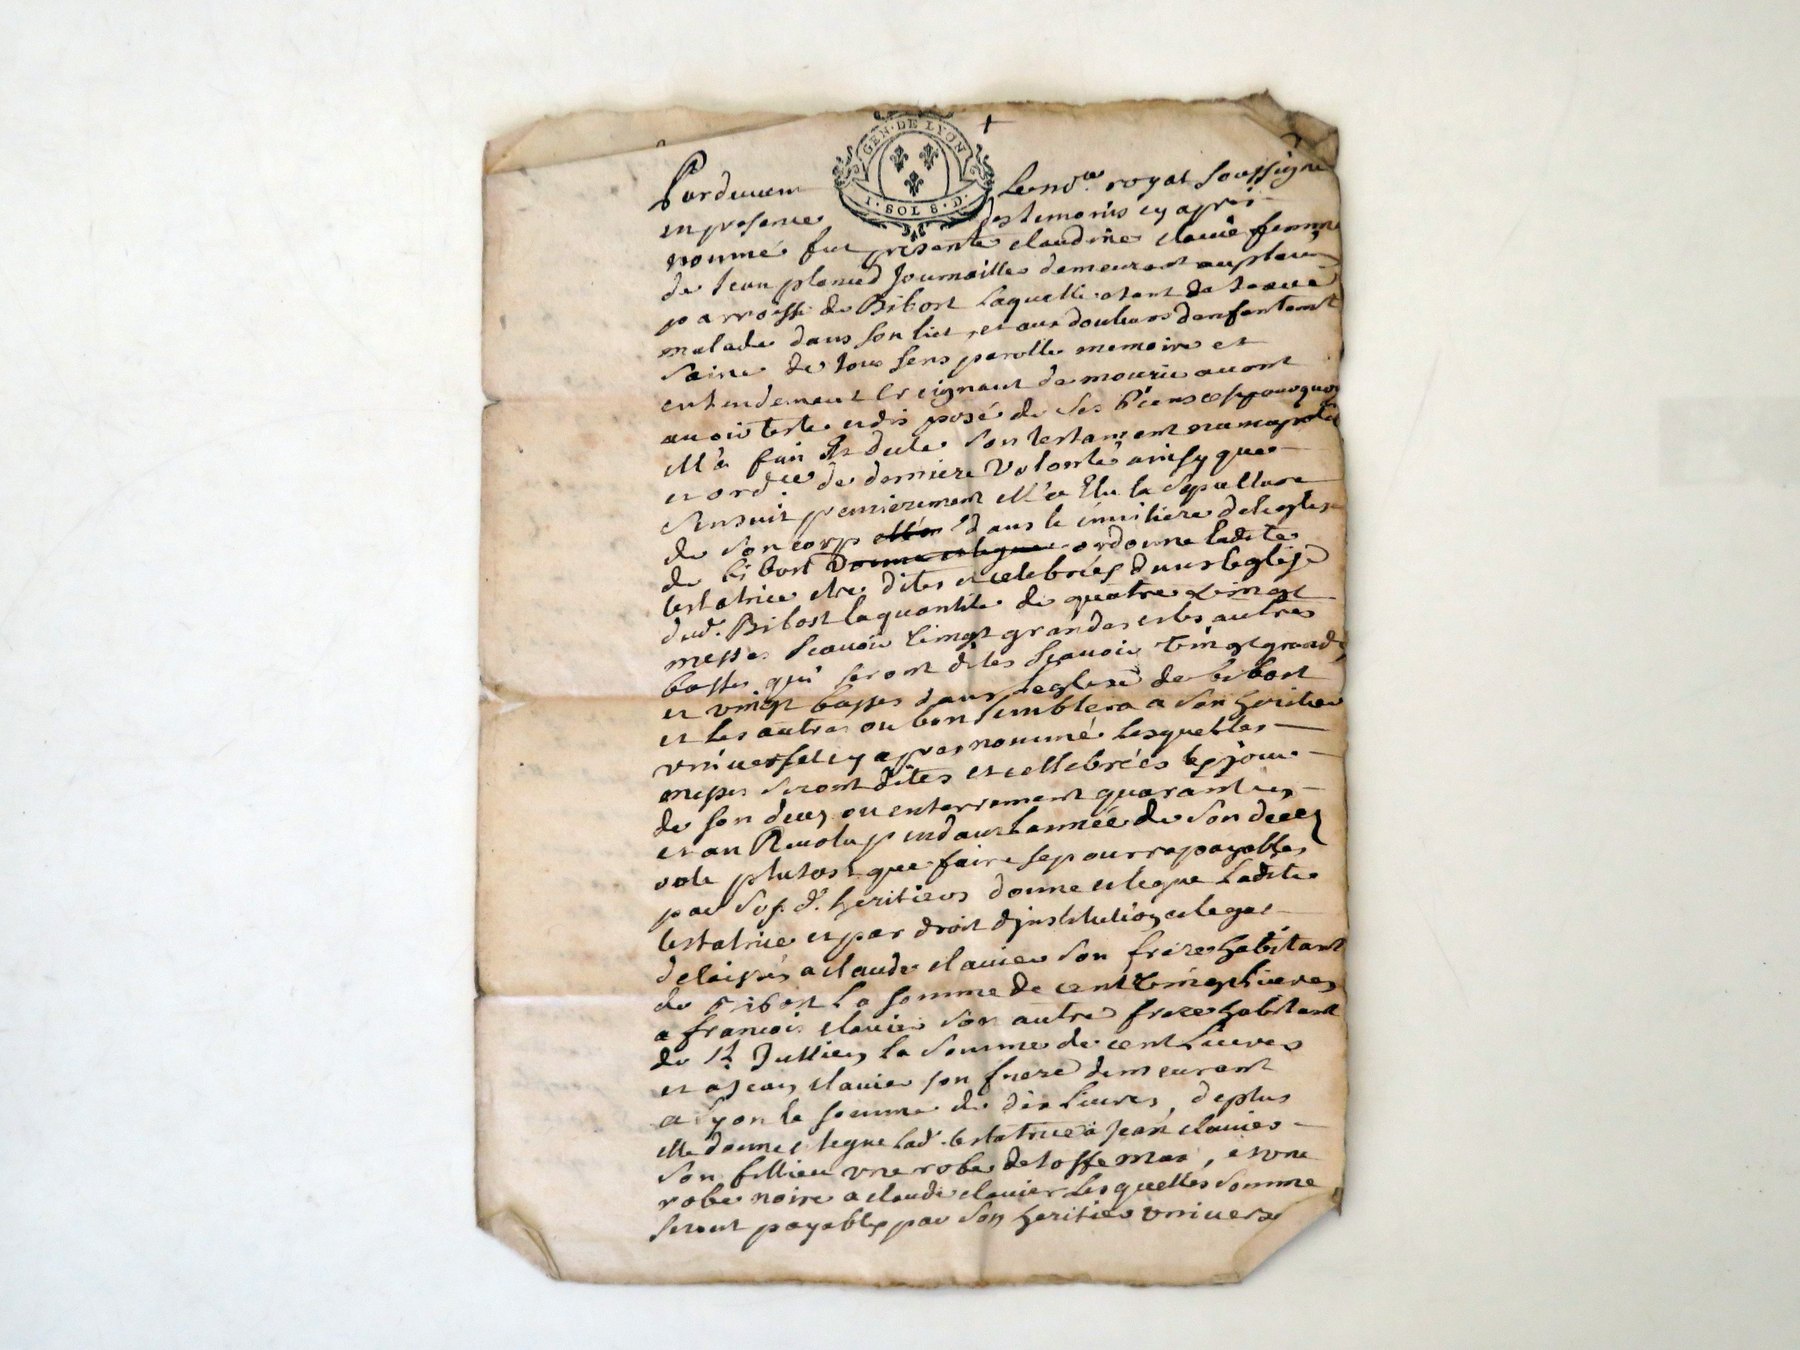 GEN·DE LYON
I·SOL S·D·
Pardevem Le no.re royat soussigne
en presence des temoins cy apres
nommé fut presente claudine clavie femme
de Jean planud Journaillie demeurant au
parroisse de Bibost Laquelle etant
malade dans son lict, et aux douleurs denfantemt
saine de tous sens parolle memoire et
entendement Creignant de mourir avant
avoir teste et disposé de ses biens cest pourquoy
ell'a fait son testament
et ordce de derniere volonté ainsy que
sensuit premierement ell'a Elu la sepulture
de son corp dans le cimitiere de leglise
de bibost ordonne ladite
testatrice etre dites et celebrées dans leglise
dud. Bibost la quantite de quatre vingt
messes scavoir vingt grandes et les autres
basses qui seront dites scavoir vingt grandes
et vingt basses dans leglise de bibost
et les autres ou bon semblera a son heritier
universel cy apres nommé Lesquelles
messes seront dites et cellebrées le jour
de son deces ou enterrement quarantes
et an Revolu pendant lannée de son deces
plutost que faire se pourra payables
par ses d. heritiers donne et legue Ladite
testatrice et par droit dinstitution et legat
delaissés a claude clavier son frere habitant
de bibost La somme de cent vingt Livres
a francois clavier son autre frere habitant
de St Jullien la somme de cent Livres
et a Jean clavier son frere demeurant
a Lyon la somme de dix Livres, deplus
elle donne legue lad. testatrice a Jean clavier
son fillieu une robe detoffe , et une
robe noire a claude clavier Lesquelles somme
seront payables par son heritier univers